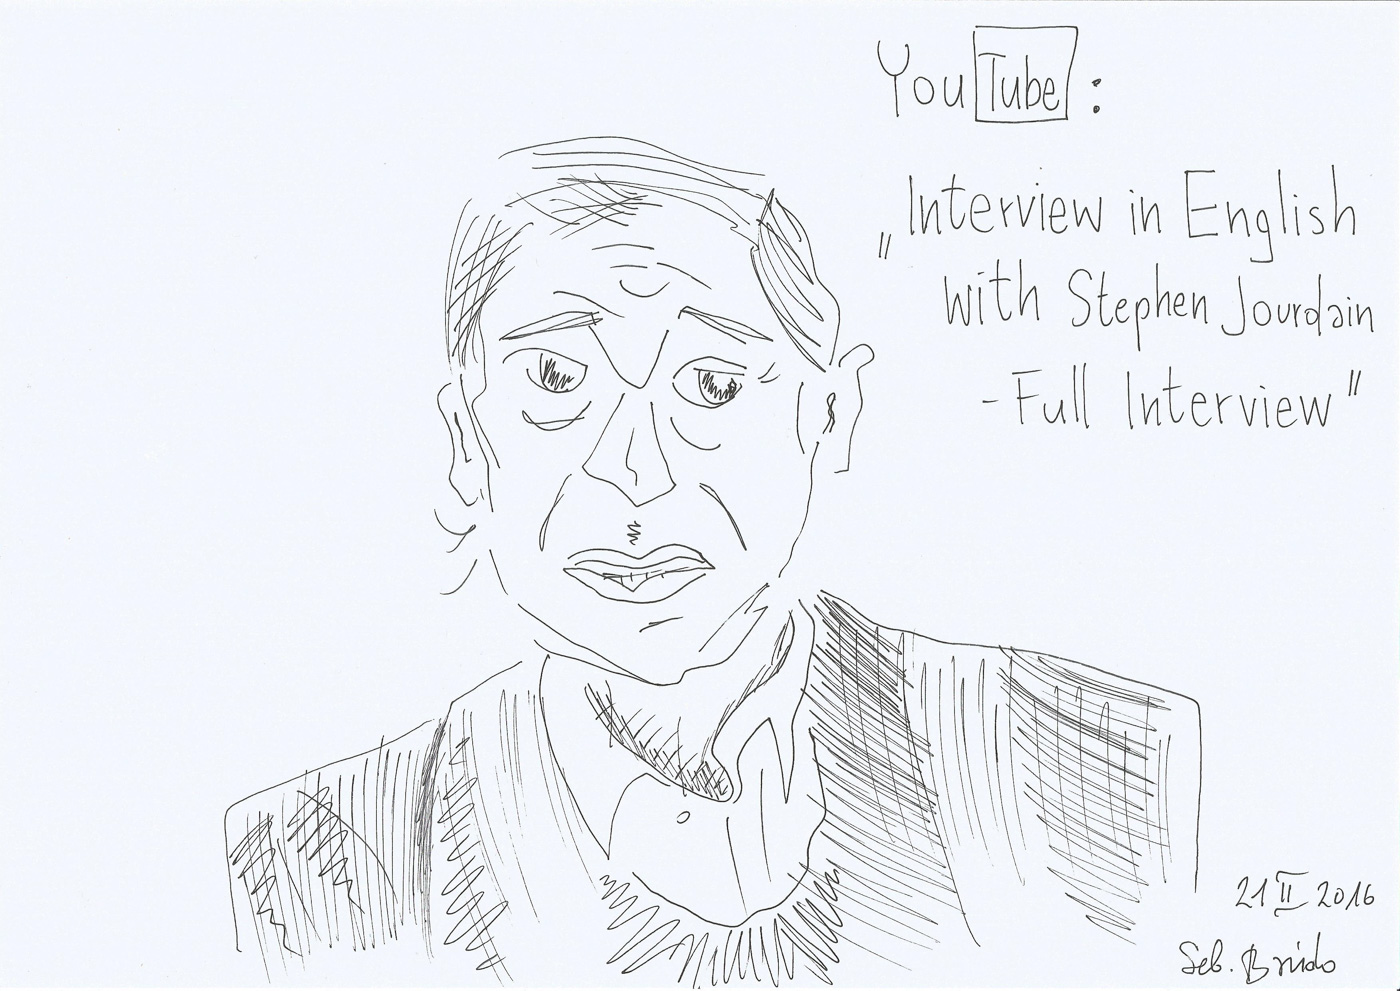 YouTube:
„Interview in English
with Stephen Jourdain
- Full Interview"
21 II 2016
Seb.